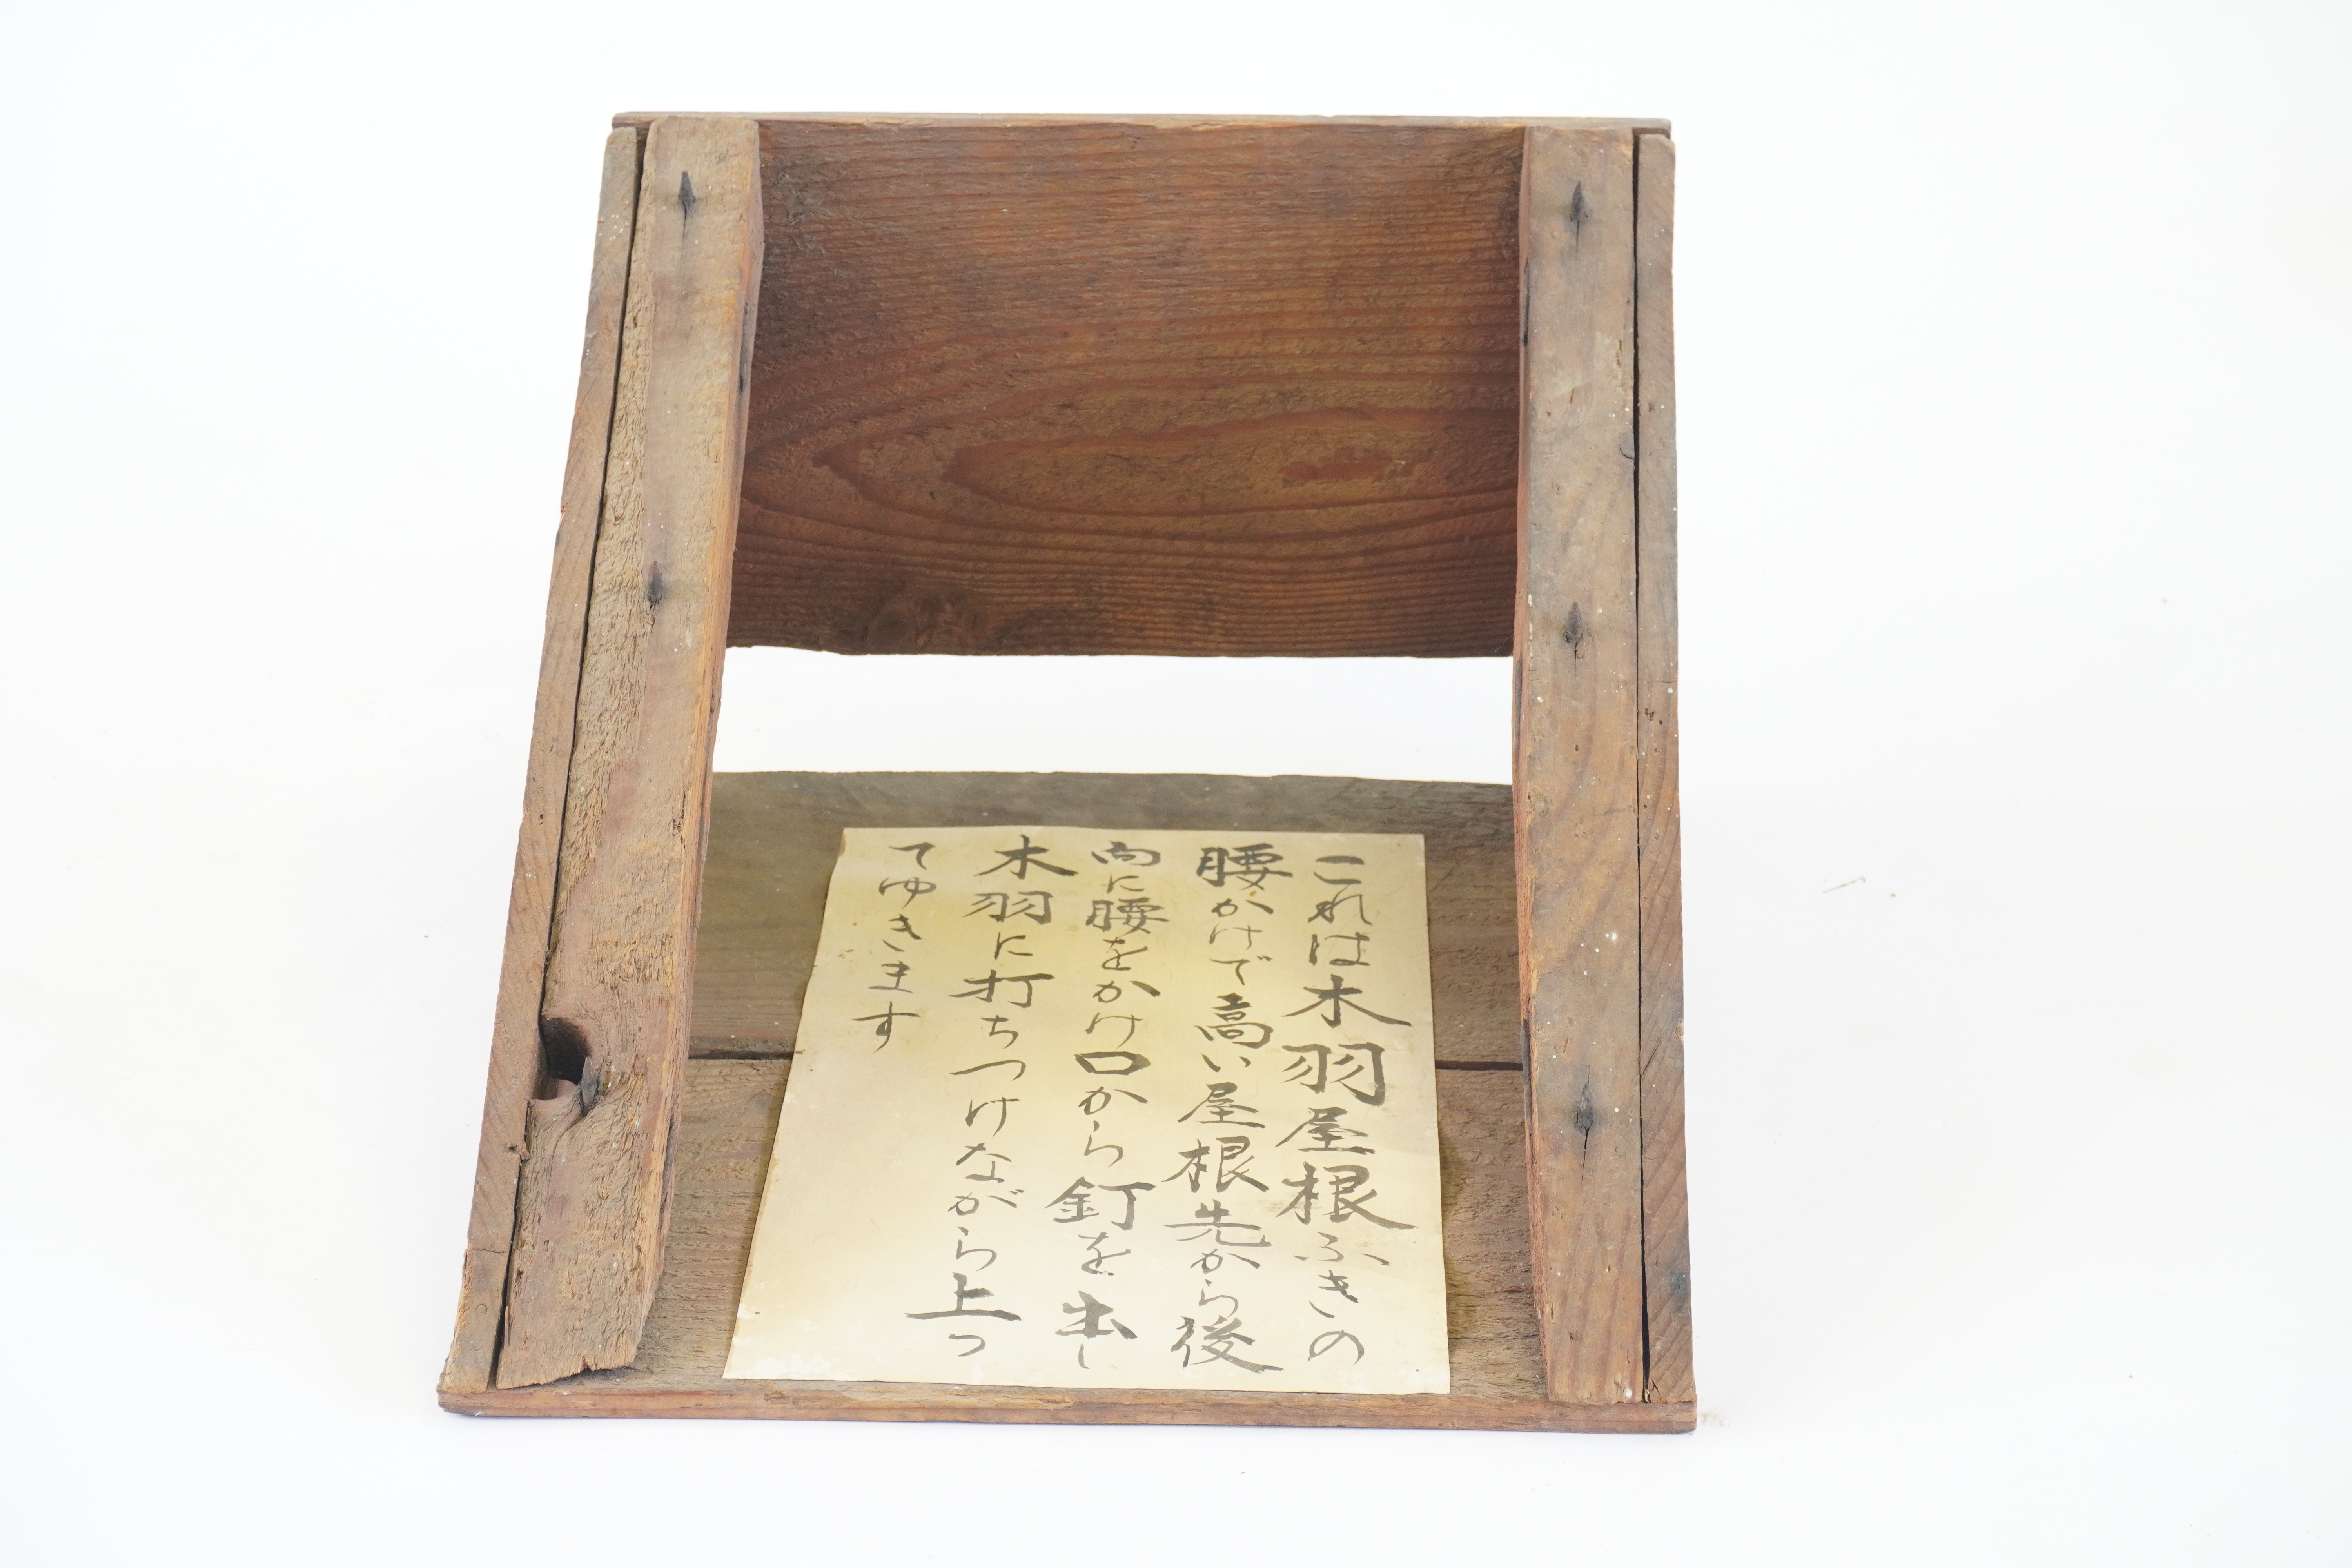 これは木羽屋根ふきの
腰かけで高い屋根先から後
向に腰をかけ口から釘を出し
木羽に打ちつけながら上っ
てゆきます